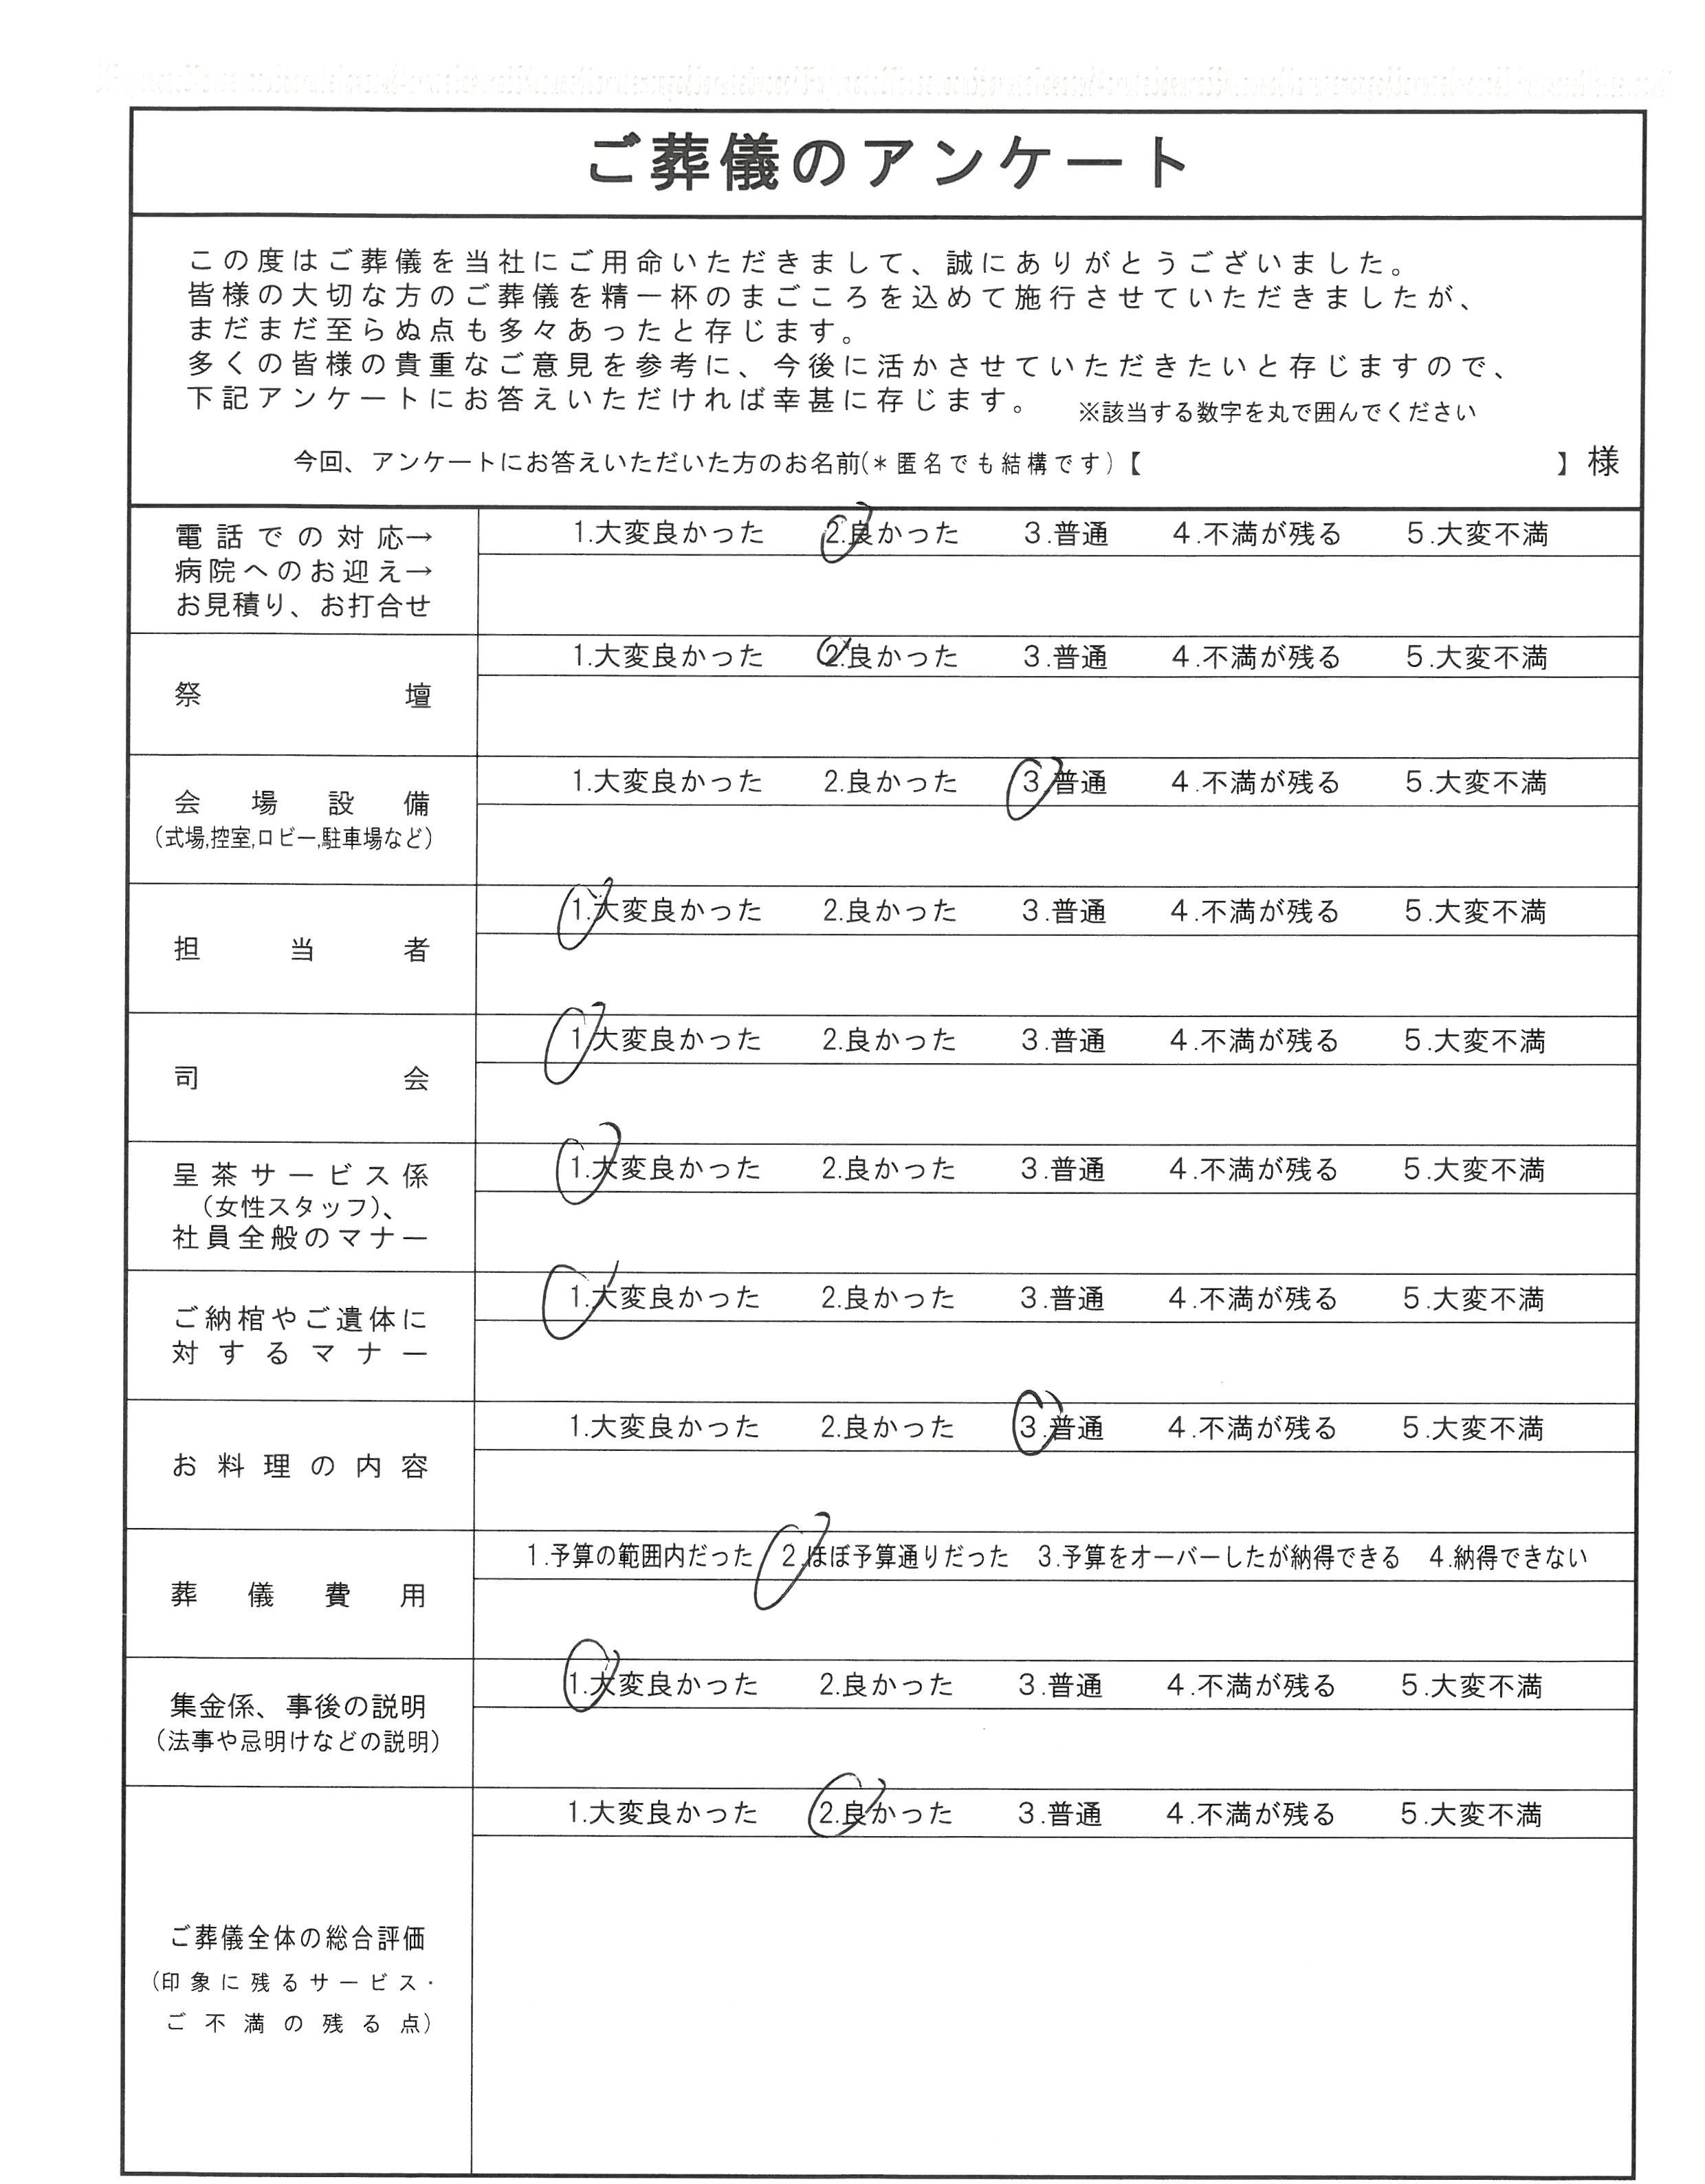 ご葬儀のアンケート
この度はご葬儀を当社にご用命いただきまして、誠にありがとうございました。
皆様の大切な方のご葬儀を精一杯のまごころを込めて施行させていただきましたが、
まだまだ至らぬ点も多々あったと存じます。
多くの皆様の貴重なご意見を参考に、今後に活かさせていただきたいと存じますので、
下記アンケートにお答えいただければ幸甚に存じます。 ※該当する数字を丸で囲んでください
今回、アンケートにお答えいただいた方のお名前(*匿名でも結構です)【 】様
電話での対応→
病院へのお迎え→
お見積り、お打合せ
1.大変良かった 2.良かった 3.普通 4.不満が残る 5.大変不満
祭壇
1.大変良かった 2.良かった 3.普通 4.不満が残る 5.大変不満
会場設備
(式場,控室,ロビー,駐車場など)
1.大変良かった 2.良かった 3.普通 4.不満が残る 5.大変不満
担当者
1.大変良かった 2.良かった 3.普通 4.不満が残る 5.大変不満
司会
1.大変良かった 2.良かった 3.普通 4.不満が残る 5.大変不満
呈茶サービス係
(女性スタッフ)、
社員全般のマナー
1.大変良かった 2.良かった 3.普通 4.不満が残る 5.大変不満
ご納棺やご遺体に
対するマナー
1.大変良かった 2.良かった 3.普通 4.不満が残る 5.大変不満
お料理の内容
1.大変良かった 2.良かった 3.普通 4.不満が残る 5.大変不満
葬儀費用
1.予算の範囲内だった 2.ほぼ予算通りだった 3.予算をオーバーしたが納得できる 4.納得できない
集金係、事後の説明
(法事や忌明けなどの説明)
1.大変良かった 2.良かった 3.普通 4.不満が残る 5.大変不満
ご葬儀全体の総合評価
(印象に残るサービス・
ご不満の残る点)
1.大変良かった 2.良かった 3.普通 4.不満が残る 5.大変不満